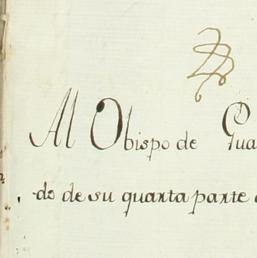 Al Obispo de Gua
do de su quarta parte